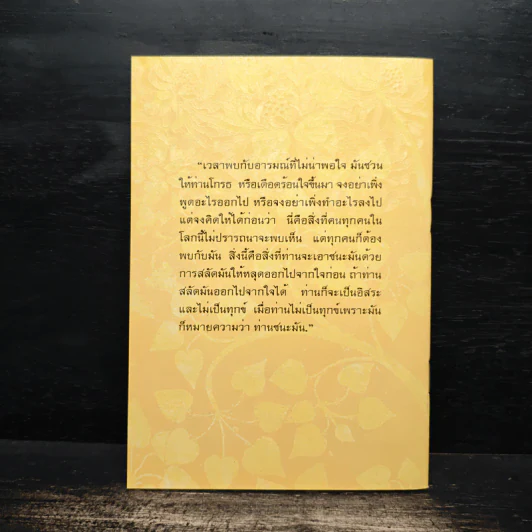 “เวลาพบกับอารมณ์ที่ไม่น่าพอใจ มันชวน
ให้ท่านโกรธ หรือเดือดร้อนใจขึ้นมา จงอย่าเพิ่ง
พูดอะไรออกไป หรือจงอย่าเพิ่งทำอะไรลงไป
แต่จงคิดให้ได้ก่อนว่า นี่คือสิ่งที่คนทุกคนใน
โลกนี้ไม่ปรารถนาจะพบเห็น แต่ทุกคนก็ต้อง
พบกับมัน สิ่งนี้คือสิ่งที่ท่านจะเอาชนะมันด้วย
การสลัดมันให้หลุดออกไปจากใจก่อน ถ้าท่าน
สลัดมันออกไปจากใจได้ ท่านก็จะเป็นอิสระ
และไม่เป็นทุกข์ เมื่อท่านไม่เป็นทุกข์เพราะมัน
ก็หมายความว่า ท่านชนะมัน.”